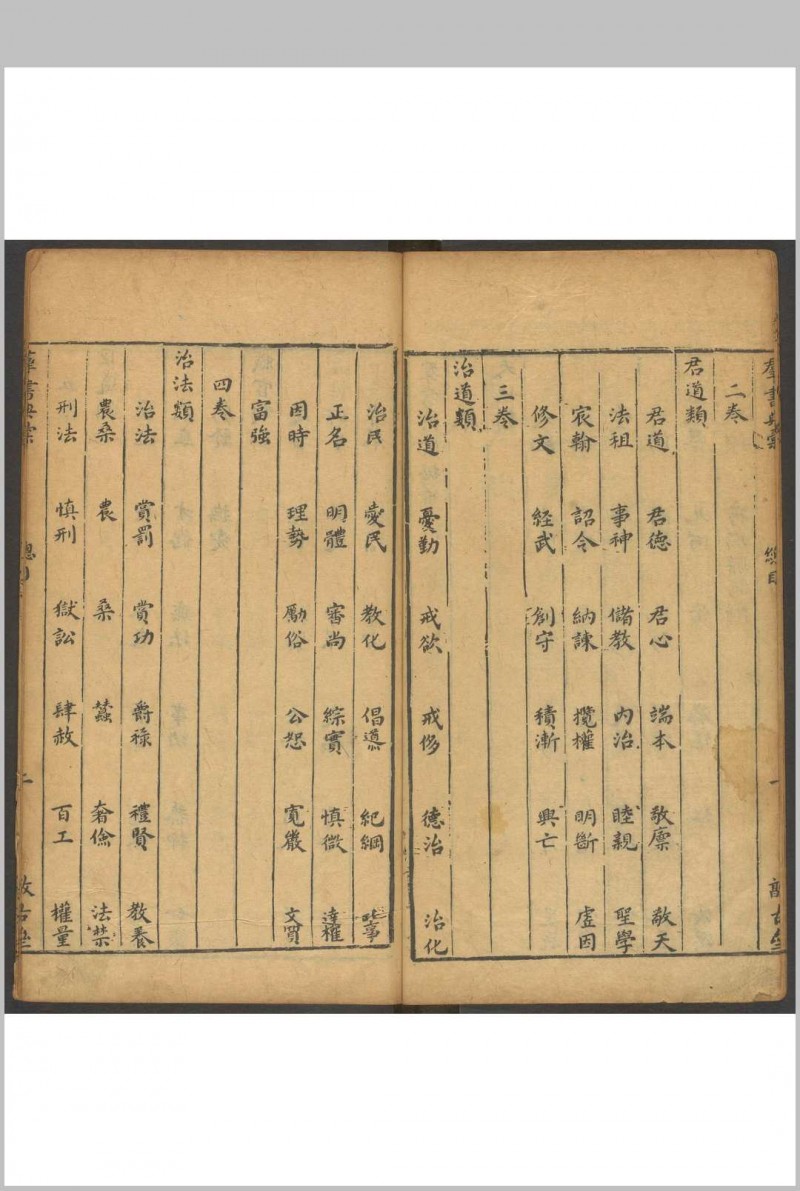 羣書典彙
總目
一
二巻
君道類
君道 君德 君心 端本 敬廪 敬天
法祖 事神 儲教 內治 睦親 聖學
宸翰 詔令 納諫 攬權 明斷 虛因
修文 經武 創守 積漸 興亡
三巻
治道類
治道 憂勤 戒欲 戒侈 德治 治化
治民 愛民 教化 倡導 紀綱
正名 明體 審尚 綜實 慎微 達權
因時 理勢 勵俗 公恕 寬嚴 文質
富強
四巻
治法類
治法 賞罰 賞功 爵祿 禮賢 教養
農桑 農 桑 蠶 奢儉 法禁
刑法 慎刑 獄訟 肆赦 百工 權量